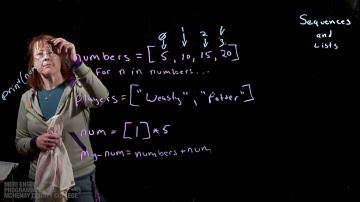 Sequences
and
Lists
0 1 2 3
numbers = [5, 10, 15, 20]
for n in numbers...
players = ["Weasly", "Potter"]
num = [1] * 5
my_num = numbers + num
MCHENRY COUNTY COLLEGE